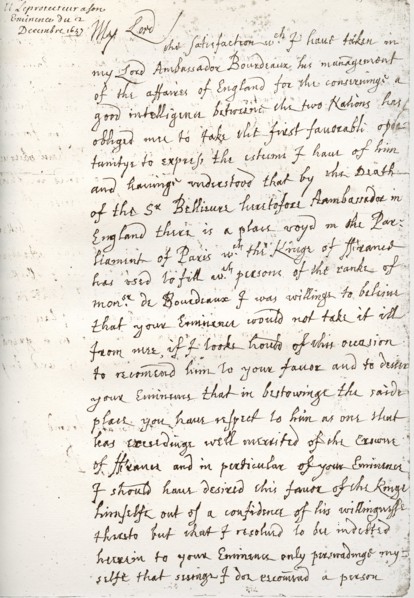 Le protecteur a son
Eminence du 2
Decembre 1657
My Lord
the satisfaction wch I have taken in
my Lord Ambassador Bourdeaux his management
of the affaires of England for the conserving a
good intelligence betweene the two Nations has
obliged mee to take the first favorable opor
tunitye to expresse the esteeme I have of him
and havinge understood that by the Death
of the Sr Bellievre heretofore Ambassador in
England there is a place voyd in the Par
liament of Paris wch the Kinge of ffrance
has used to fill wth persons of the ranke of
monsr de Bourdeaux I was willinge to believe
that your Eminence would not take it ill
from mee, if I tooke hould of this occasion
to recomend him to your favor and to desire
your Eminence that in bestowinge the saide
place you have respect to him as one that
has exceedinge well merrited of the Crowne
of ffrance and in perticular of your Eminence
I should have desired this favor of the Kinge
himselfe out of a confidence of his willingnesse
thereto but that I resolved to be indebted
herein to your Eminence only perswadinge my
selfe that seeinge I doe recomend a person